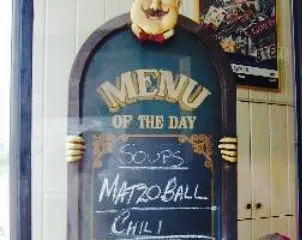 MENU
OF THE DAY
SOUPS
MATZOBALL
CHILI